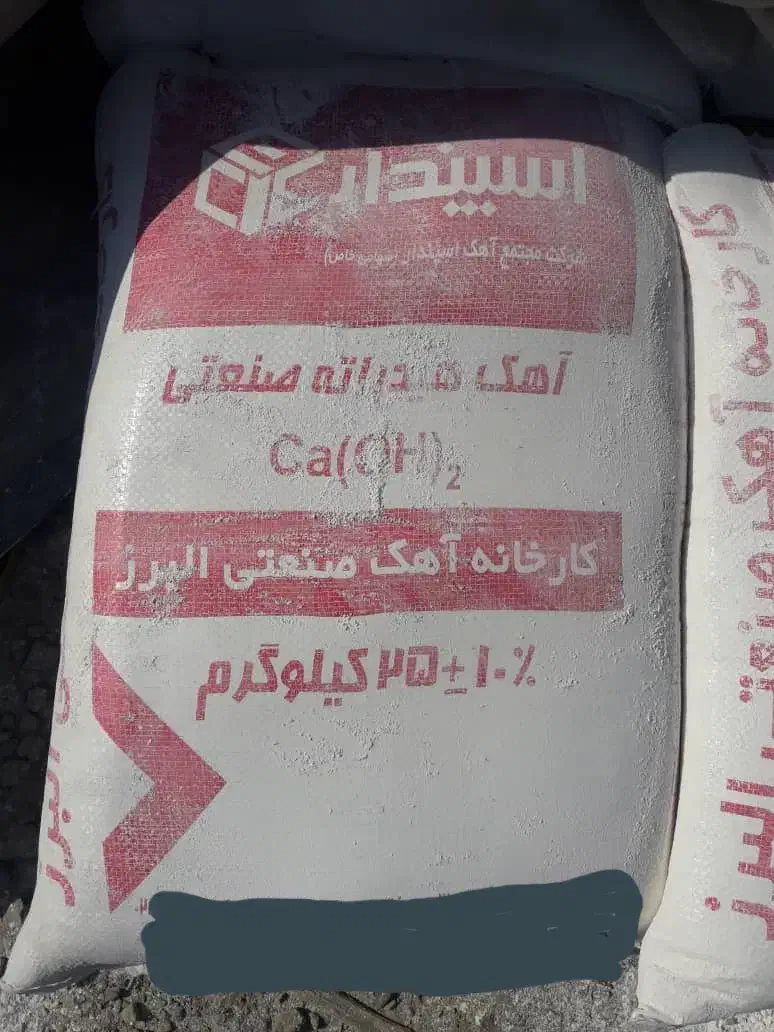 اسپندار
شرکت مجتمع آهک اسپندار (سهامی خاص)
آهک هیدراته صنعتی
Ca(OH)₂
کارخانه آهک صنعتی البرز
۲۵±۱۰٪ کیلوگرم
البرز
کارخانه آهک صنعتی البرز